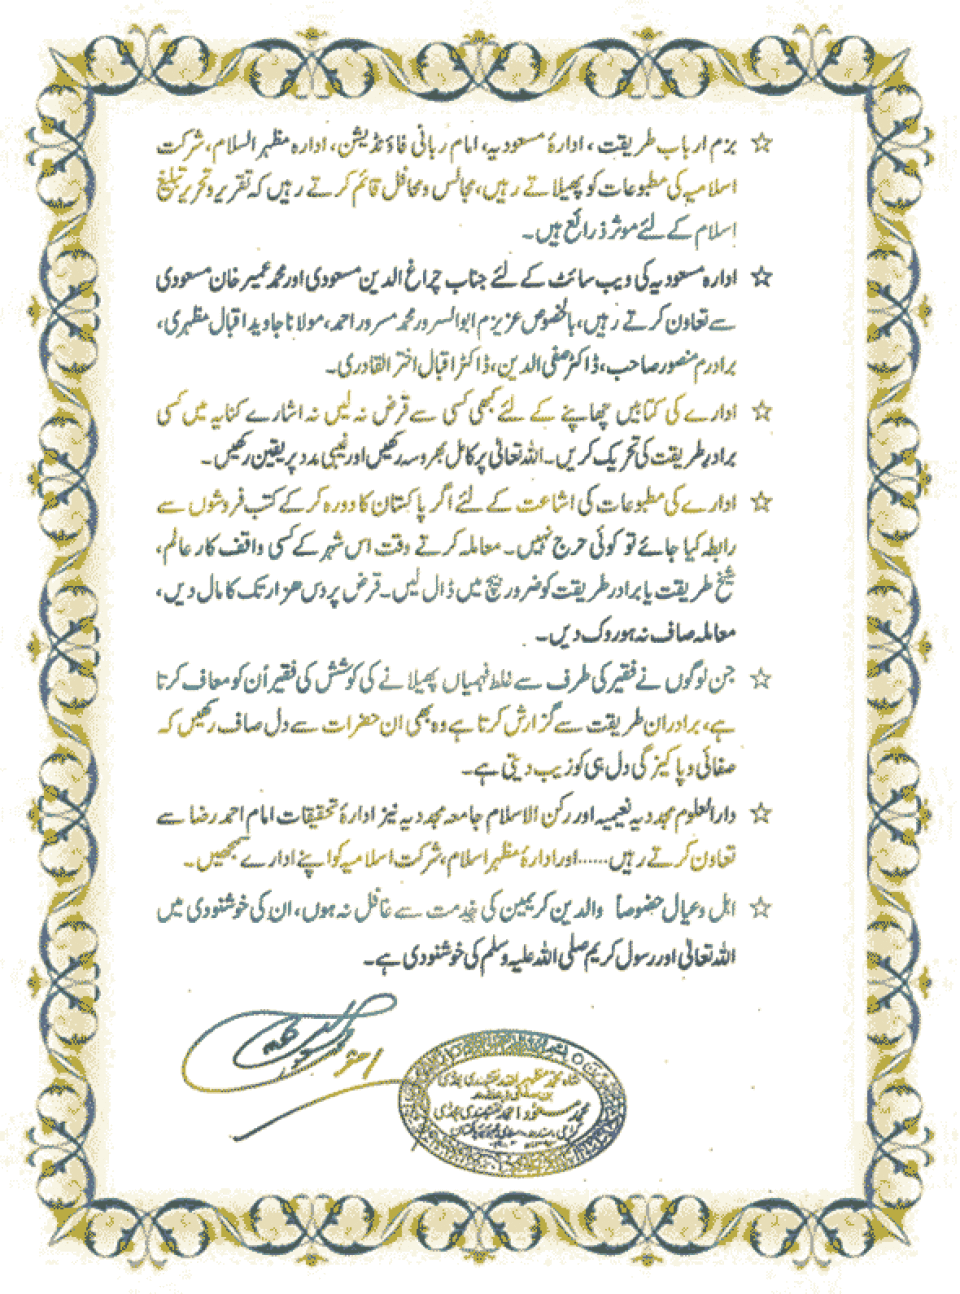 ☆ بزم ارباب طریقت، ادارۂ مسعودیہ، امام ربانی فاؤنڈیشن، ادارہ مظہر السلام، شرکت
اسلامیہ کی مطبوعات کو پھیلاتے رہیں، مجالس و محافل قائم کرتے رہیں کہ تقریر و تحریر تبلیغ
اسلام کے لئے موثر ذرائع ہیں۔
☆ ادارہ مسعودیہ کی ویب سائٹ کے لئے جناب چراغ الدین مسعودی اور محمد عمیر خان مسعودی
سے تعاون کرتے رہیں، بالخصوص عزیزم ابوالسرور محمد مسرور احمد، مولانا جاوید اقبال مظہری،
برادرم منصور صاحب، ڈاکٹر صفی الدین، ڈاکٹر اقبال اختر القادری۔
☆ ادارے کی کتابیں چھاپنے کے لئے کبھی کسی سے قرض نہ لیں نہ اشارے کنایہ میں کسی
برادر طریقت کی تحریک کریں۔ اللہ تعالیٰ پر کامل بھروسہ رکھیں اور غیبی مدد پر یقین رکھیں۔
☆ ادارے کی مطبوعات کی اشاعت کے لئے اگر پاکستان کا دورہ کر کے کتب فروشوں سے
رابطہ کیا جائے تو کوئی حرج نہیں۔ معاملہ کرتے وقت اس شہر کے کسی واقف کار عالم،
شیخ طریقت یا برادر طریقت کو ضرور بیچ میں ڈال لیں۔ قرض پر دس ھزار تک کا مال دیں،
معاملہ صاف نہ ہو روک دیں۔
☆ جن لوگوں نے فقیر کی طرف سے غلط فہمیاں پھیلانے کی کوشش کی فقیر اُن کو معاف کرتا
ہے، برادران طریقت سے گزارش کرتا ہے وہ بھی ان حضرات سے دل صاف رکھیں کہ
صفائی و پاکیزگی دل ہی کو زیب دیتی ہے۔
☆ دارالعلوم مجددیہ نعیمیہ اور رکن الاسلام جامعہ مجددیہ نیز ادارۂ تحقیقات امام احمد رضا سے
تعاون کرتے رہیں......اور ادارۂ مظہر اسلام، شرکت اسلامیہ کو اپنے ادارے سمجھیں۔
☆ اہل و عیال خصوصاً والدین کریمین کی خدمت سے غافل نہ ہوں، ان کی خوشنودی میں
اللہ تعالیٰ اور رسول کریم صلی اللہ علیہ وسلم کی خوشنودی ہے۔
شاہ محمد مظہر اللہ نقشبندی مجددی
محمد مسعود احمد نقشبندی مجددی